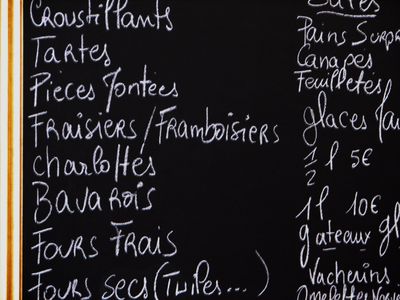 Croustillants
Tartes
Pièces Montées
Fraisiers/Framboisiers
Charlottes
Bavarois
Fours Frais
Fours secs (Tuiles...)
Salés
Pains Surpr
Canapés
Feuilletés
glaces
1/2 l 5€
1l 10€
gateaux gl
Vacherins
Omelettes